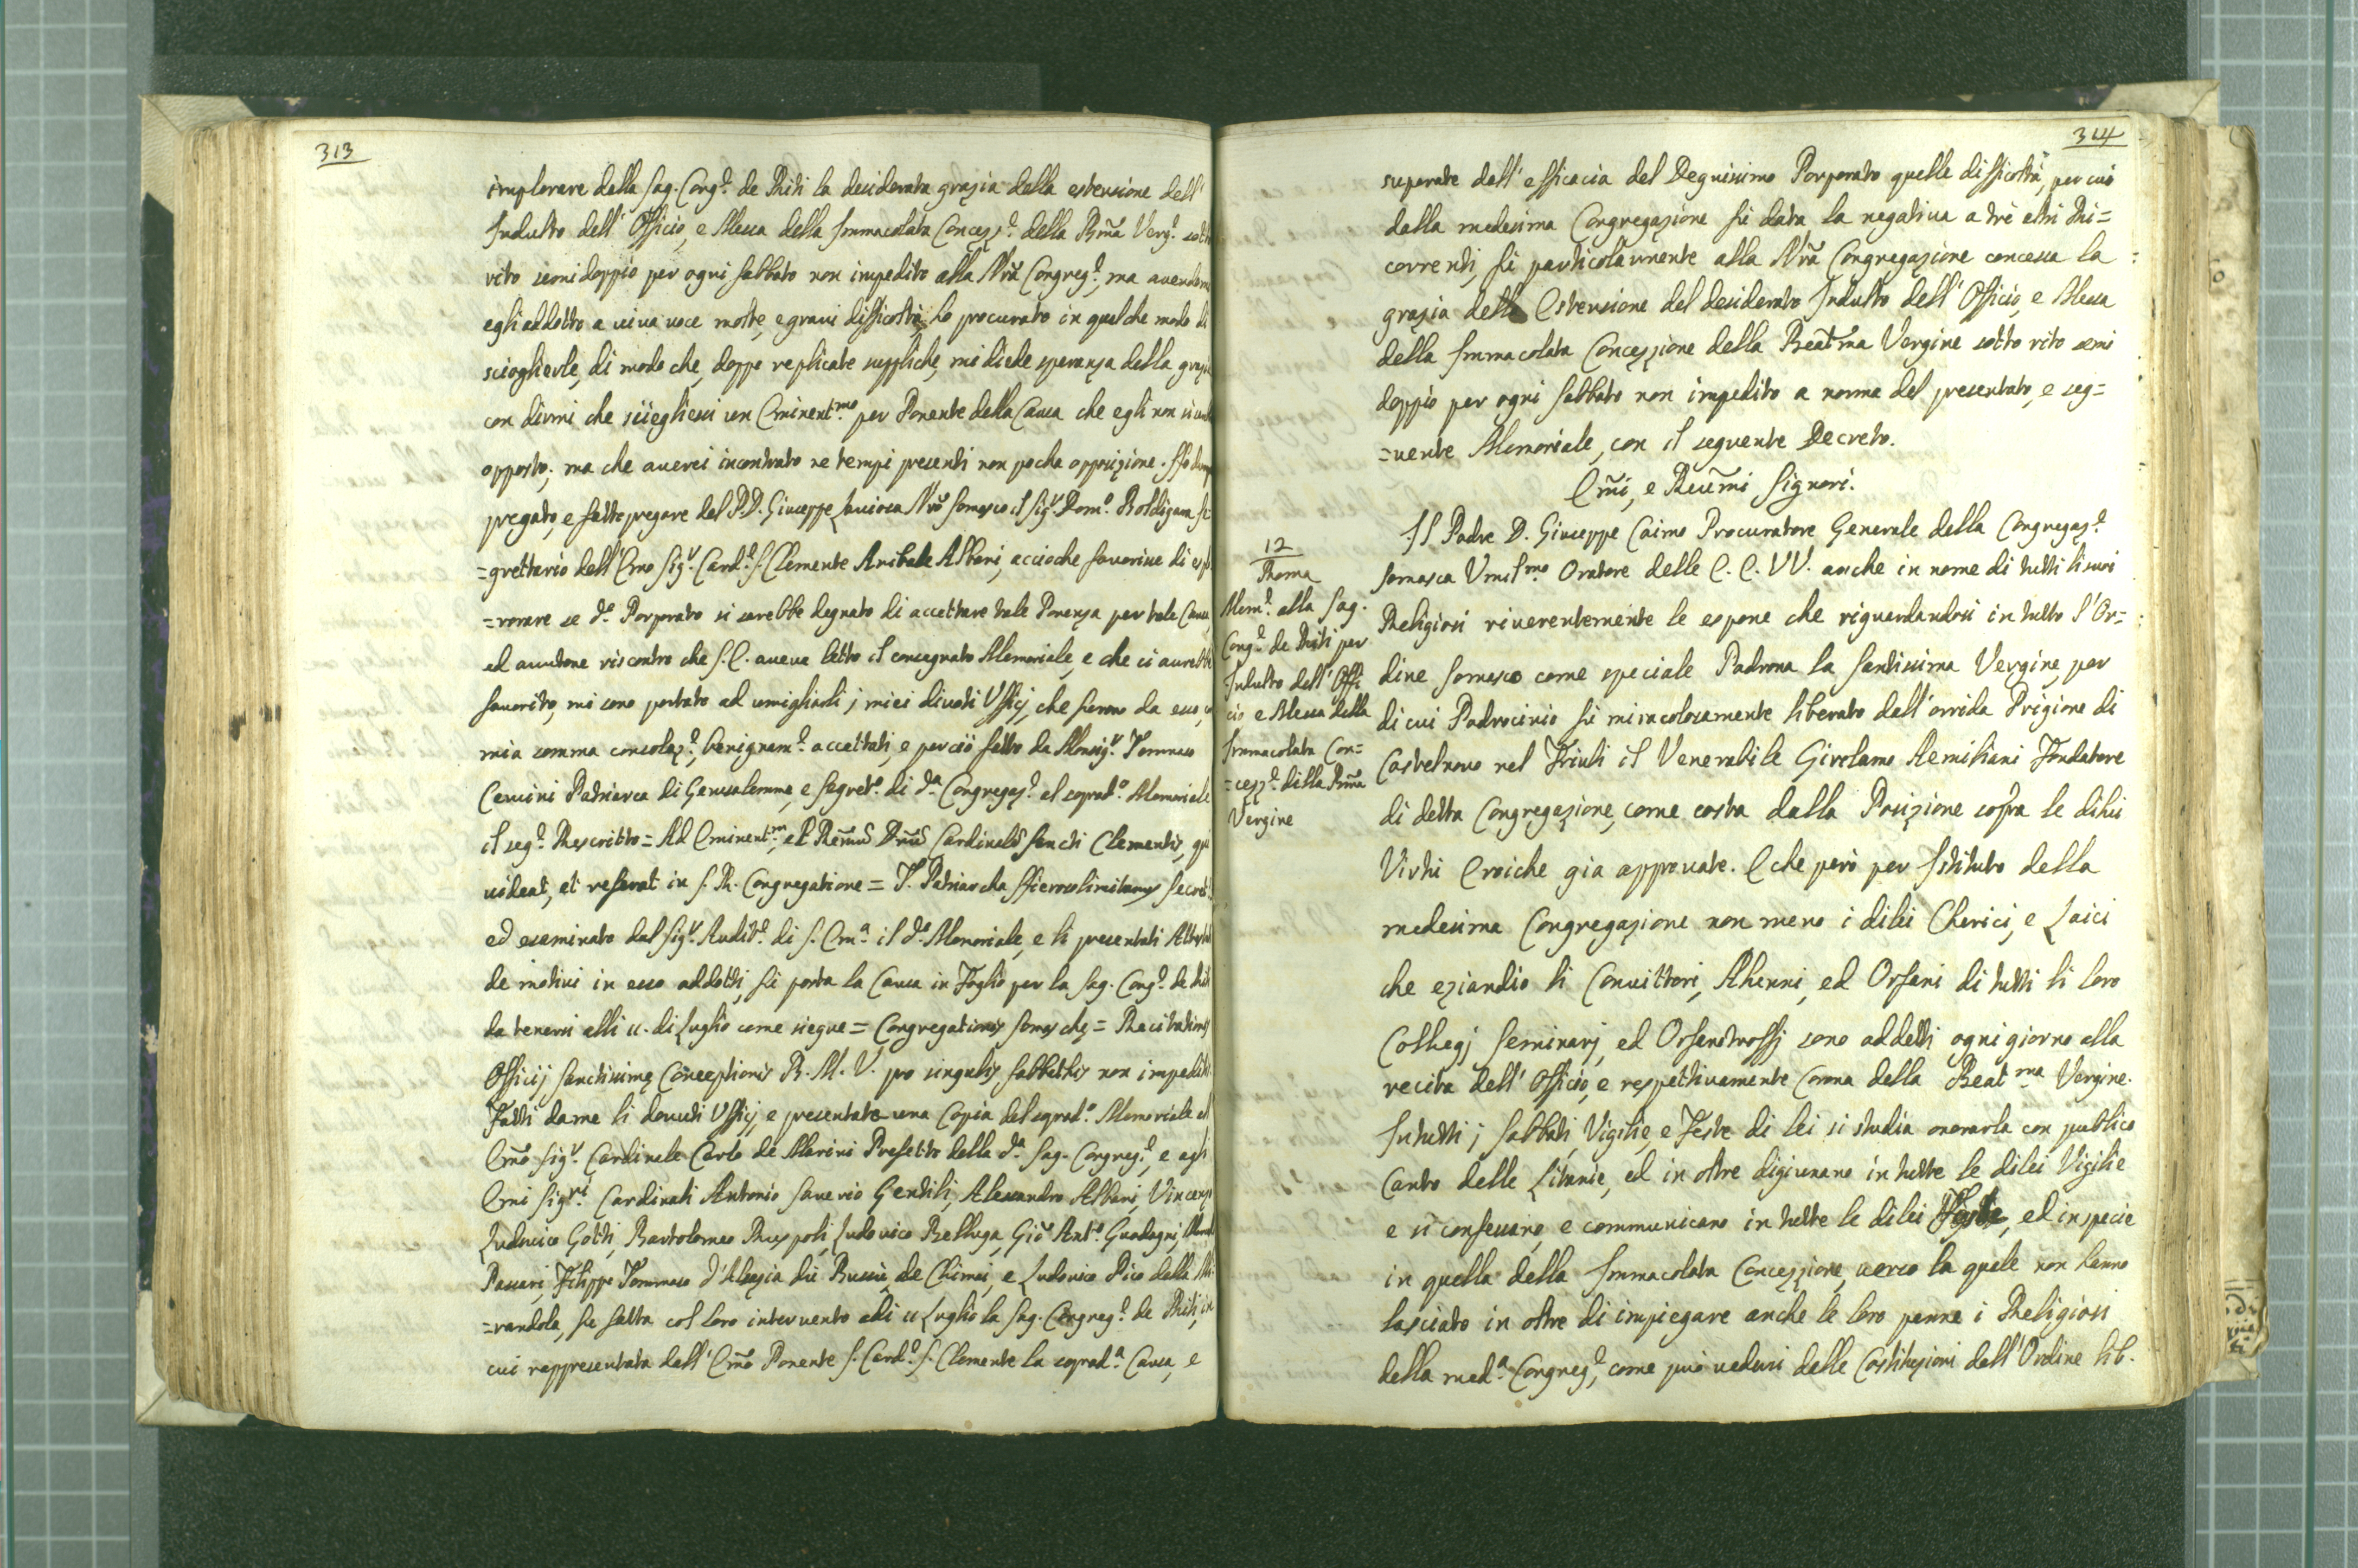 313
implorare dalla Sag. Cong.e de Riti la desiderata grazia della estensione dell'
Indulto dell'Officio, e Messa della Immacolata Concez.e della Bm̃a Verg.e sotto
rito semidoppio per ogni Sabbato non impedito alla Nrã Congreg.e, ma avendomi
egli addotto a viva voce molte, e gravi difficoltà, ho procurato in qualche modo di
scioglierle, di modo che, doppo replicate suppliche, mi diede speranza della grazia
con dirmi che sciegliessi un Eminent.mo per Ponente della Causa che egli non si
opposto; ma che averei incontrato ne tempi presenti non pocha opposizione. Ho
pregato, e fatto pregare dal P.D. Giuseppe Nrõ Somasco il Sig.r Dom.o Boldigara Se
=grettario dell'Em̃o Sig.r Card.e S. Clemente Anibale Albani, accioche favorisse di esplo
=rare se d.o Porporato si sarebbe degnato di accettare tale Ponenza per tale Causa,
ed avutone riscontro che S.E. aveva letto il consegnato Memoriale, e che ci avrebbe
favorito, mi sono portato ad umigliarli j miei divoti Ufficij, che furono da esso,
mia somma consolaz.e, benignam.e accettati, e perciò fatto da Monsig.r Tommaso
Cervini Patriarca di Gerusalemme, e Segret.o di d.a Congregaz.e al soprad.o Memoriale
il seg.e Rescritto = Ad Eminent.m, et Rem̃um Dnũm Cardinalem Sancti Clementis, qui
videat, et referat in S. R. Congregatione = T. Patriarcha Hierosolimitanus Secret.
ed esaminato dal Sig.r Audit.e di S. Em.a il d.o Memoriale, e li presentati Attestati
de motivi in esso addotti, fù posta la Causa in Foglio per la Sag. Cong.e de Riti
da tenersi alli 11. di Luglio come siegue = Congregationis Somaschę = Recitationis
Officij Sanctissimę Conceptionis B. M. V. pro singulis Sabbathis non impeditis
Fatti da me li dovuti Ufficij, e presentata una Copia del soprad.o Memoriale al
Em̃o Sig.r Cardinale Carlo de Marini Prefetto della d.a Sag. Congreg.e, e agli
Em̃i Sig.ri Cardinali Antonio Saverio Gentili, Alessandro Albani, Vincenzo
Ludovico Gotti, Bartolomeo Ruspoli, Ludovico Belluga, Giõ Ant.o Guadagni,
Passari, Filippo Tommaso d'Alsazia di Bussù de Chimai, e Ludovico Pico della Mi
=randola, fù fatta col loro intervento adi 11 Luglio la Sag. Congreg.e de Riti, in
cui rappresentata dall'Em̃o Ponente S. Card.e S. Clemente la soprad.a Causa, e
314
superate dall'efficacia del Degnissimo Porporato quelle difficoltà, per cui
dalla medesima Congregazione fù data la negativa a trè altri Ri=
correnti, fù particolarmente alla Nrã Congregazione concessa la
grazia della Estensione del desiderato Indulto dell'Officio, e Messa
della Immacolata Concezzione della Beatm̃a Vergine sotto rito semi
doppio per ogni Sabbato non impedito a norma del presentato, e seg=
=uente Memoriale, con il seguente Decreto.
Em̃i, e Reũmi Signori.
12
Roma
Mem.e alla Sag.
Cong.e de Riti per
Indulto dell'Offi
cio e Messa della
Immacolata Con=
=cezz.e della Bm̃a
Vergine
Il Padre D. Giuseppe Caimo Procuratore Generale della Congregaz.e
Somasca Umil.mo Oratore delle E. E. VV. anche in nome di tutti li suoi
Religiosi riverentemente le espone che riguardandosi in tutto l'Or=
dine Somasco come speciale Padrona la Santissima Vergine, per
di cui Padrocinio fù miracolosamente liberato dall'orrida Prigione di
Castelnovo nel Friuli il Venerabile Girolamo Aemiliani Fondatore
di detta Congregazione, come costa dalla Posizione sopra le dilui
Virtù Eroiche gia approvate. E che però per Istituto della
medesima Congregazione non meno i dilei Cherici, e Laici
che eziandio li Convittori, Alunni, ed Orfani di tutti li loro
Collegj Seminarj, ed Orfanotroffj sono addetti ogni giorno alla
recita dell'Officio, e respettivamente Corona della Beat.ma Vergine.
In tutti j Sabbati, Vigilie, e Feste di lei si studia onorarla con publico
Canto delle Litanie, ed in oltre digiunano in tutte le dilei Vigilie
e si confessano, e communicano in tutte le dilei Feste, ed in specie
in quella della Immacolata Concezzione, verso la quale non hanno
lasciato in oltre di impiegare anche le loro penne i Religiosi
della med.a Congreg.e, come può vedersi dalle Costituzioni dell'Ordine lib.